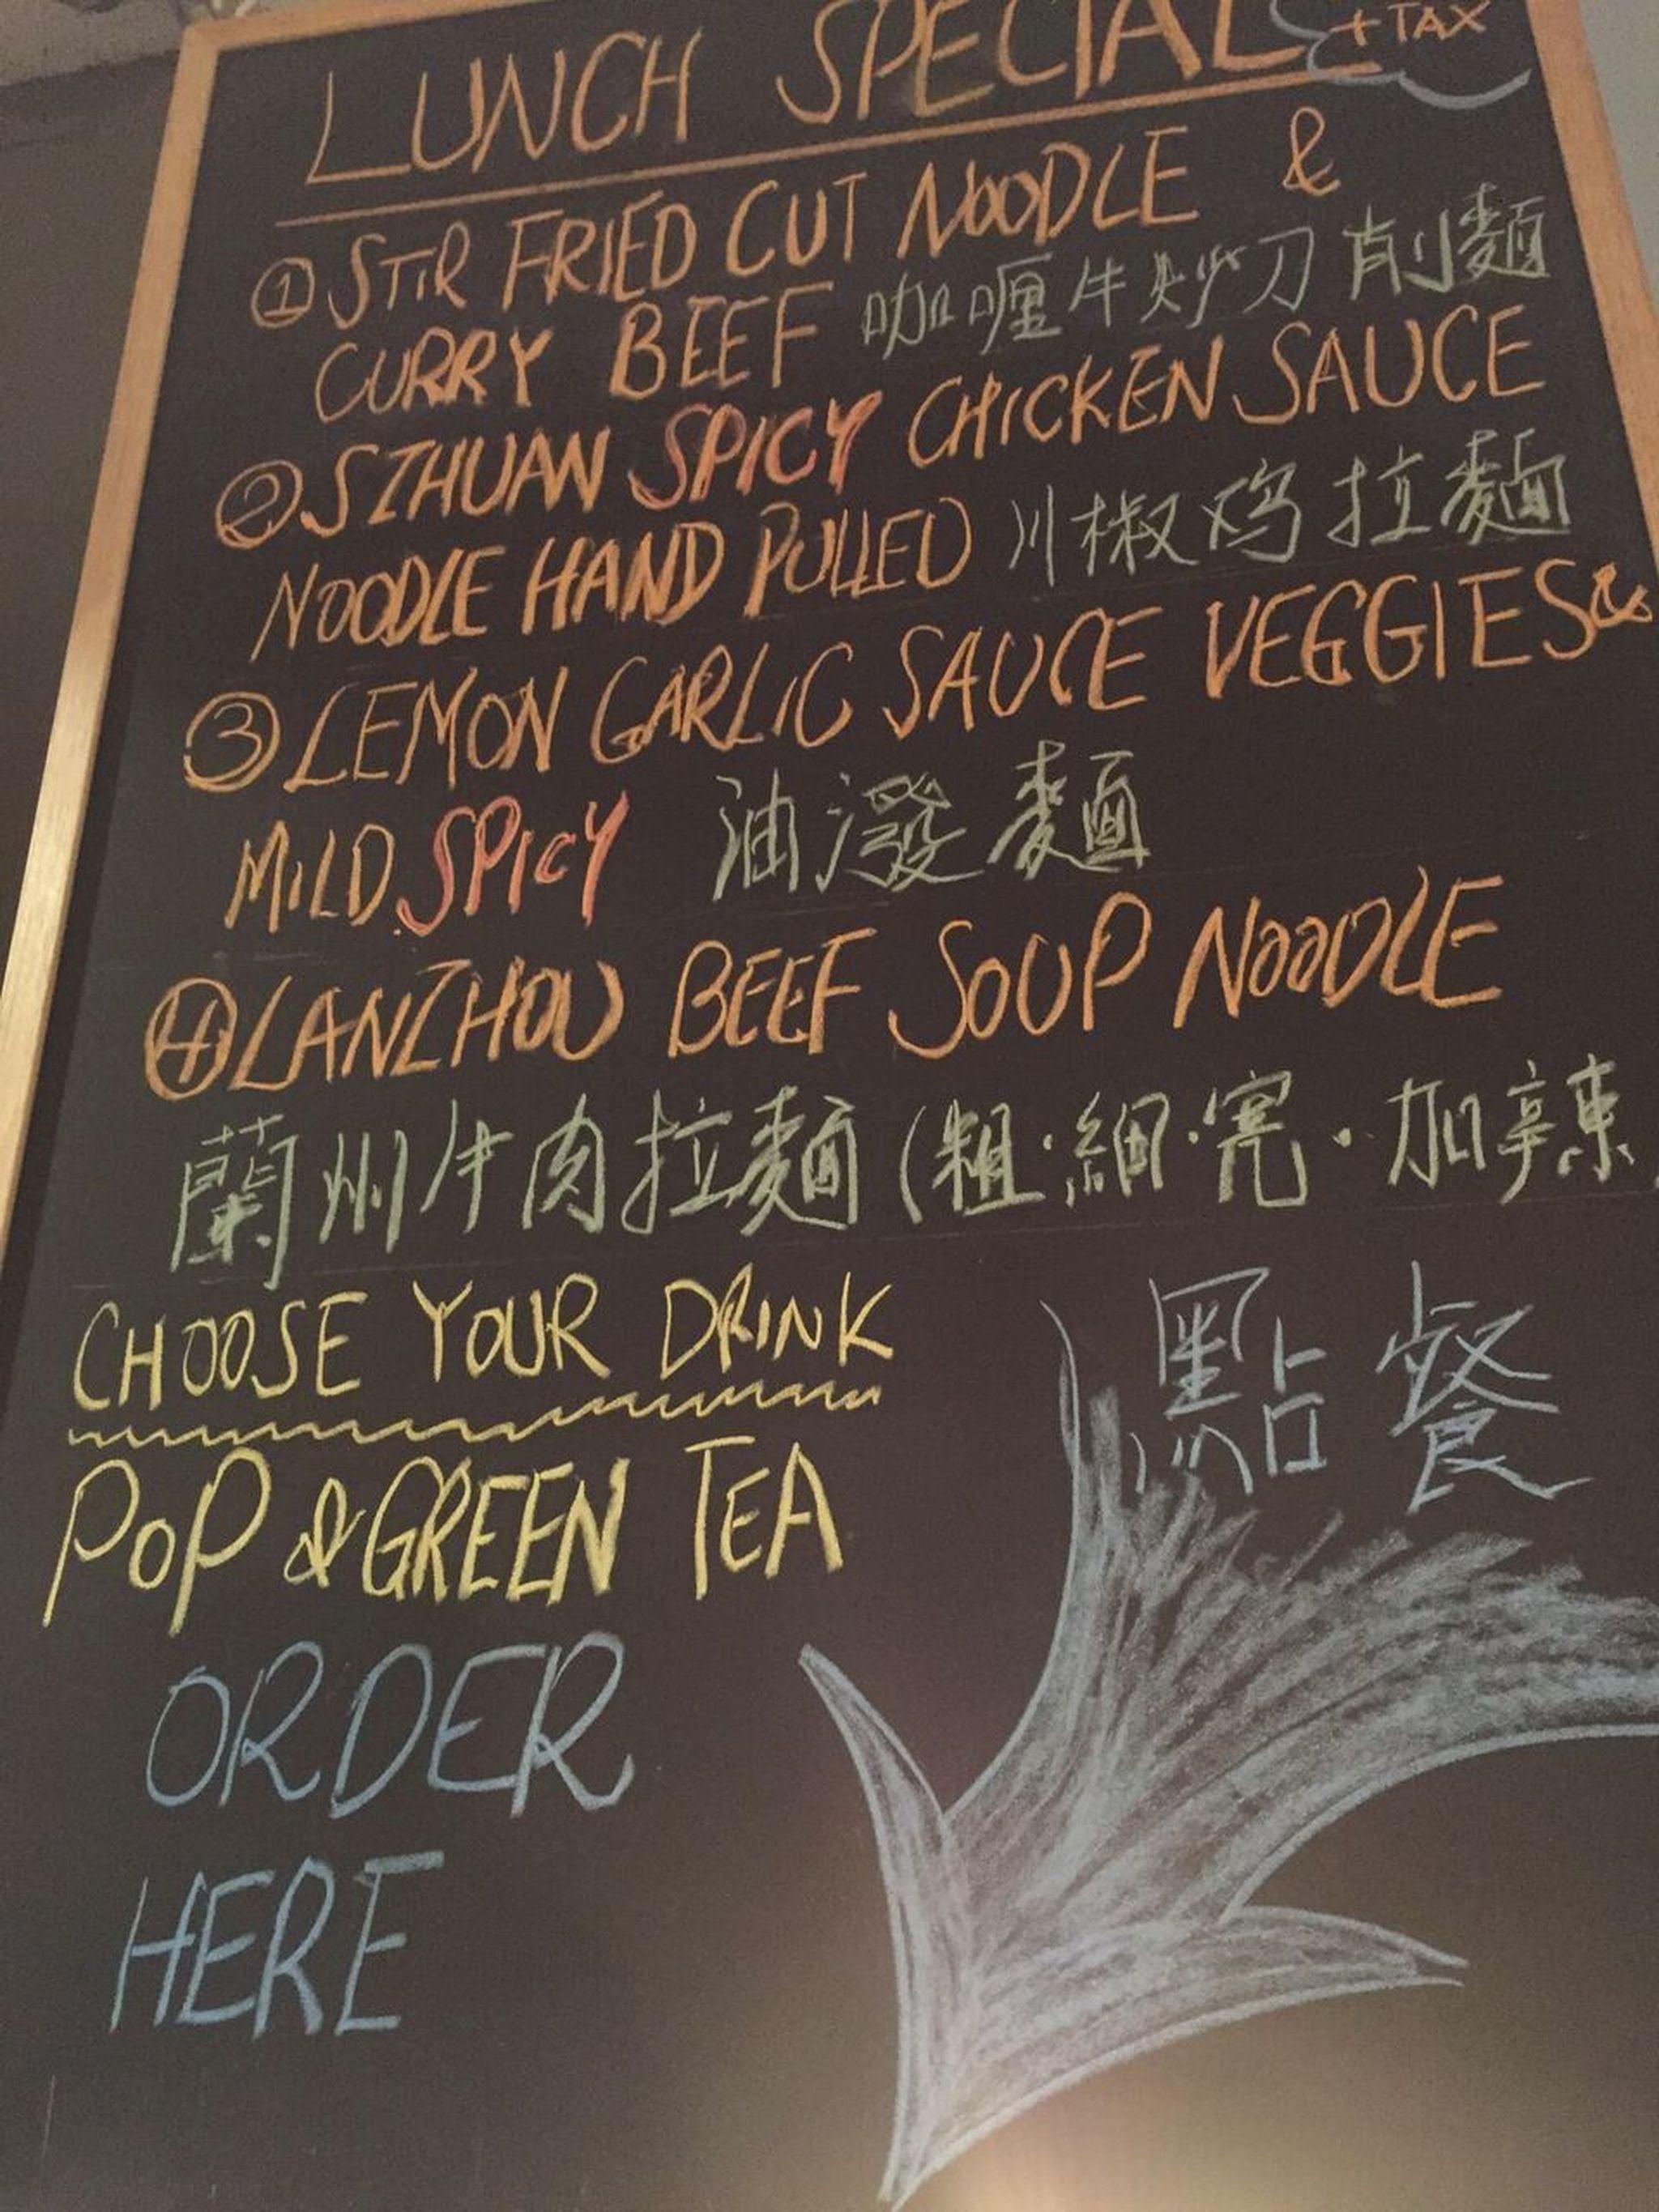 LUNCH SPECIAL + TAX
① STIR FRIED CUT NOODLE &
CURRY BEEF 咖喱牛炒刀削麵
② SZHUAN SPICY CHICKEN SAUCE
NOODLE HAND PULLED 川椒鸡拉麵
③ LEMON GARLIC SAUCE VEGGIES &
MILD SPICY 油潑麵
④ LANZHOU BEEF SOUP NOODLE
蘭州牛肉拉麵(粗·細·寬·加辣
CHOOSE YOUR DRINK
POP & GREEN TEA
點餐
ORDER
HERE